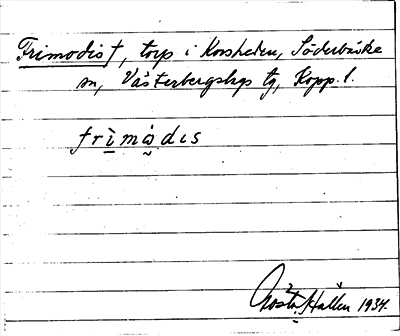 Frimodist, torp i Korsheden, Söderbärke
sn, Västerbergslags tg, Kopp. l.
frimodıs
Gösta Hallén 1934.